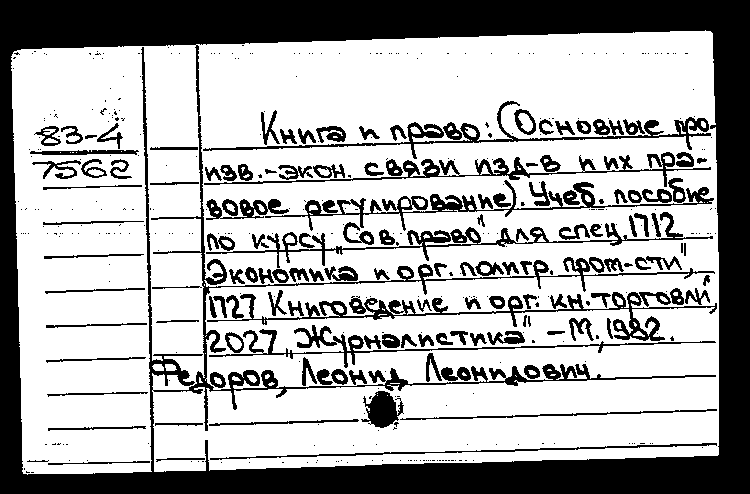 83-4
7562
Книга и право: (Основные про-
изв.-экон. связи изд-в и их пра-
вовое регулирование). Учеб. пособие
по курсу „Сов. право" для спец. 1712
Экономика и орг. полигр. пром-сти",
1727 „Книговедение и орг. кн. торговли",
2027 „Журналистика". - М., 1982.
Федоров, Леонид Леонидович.